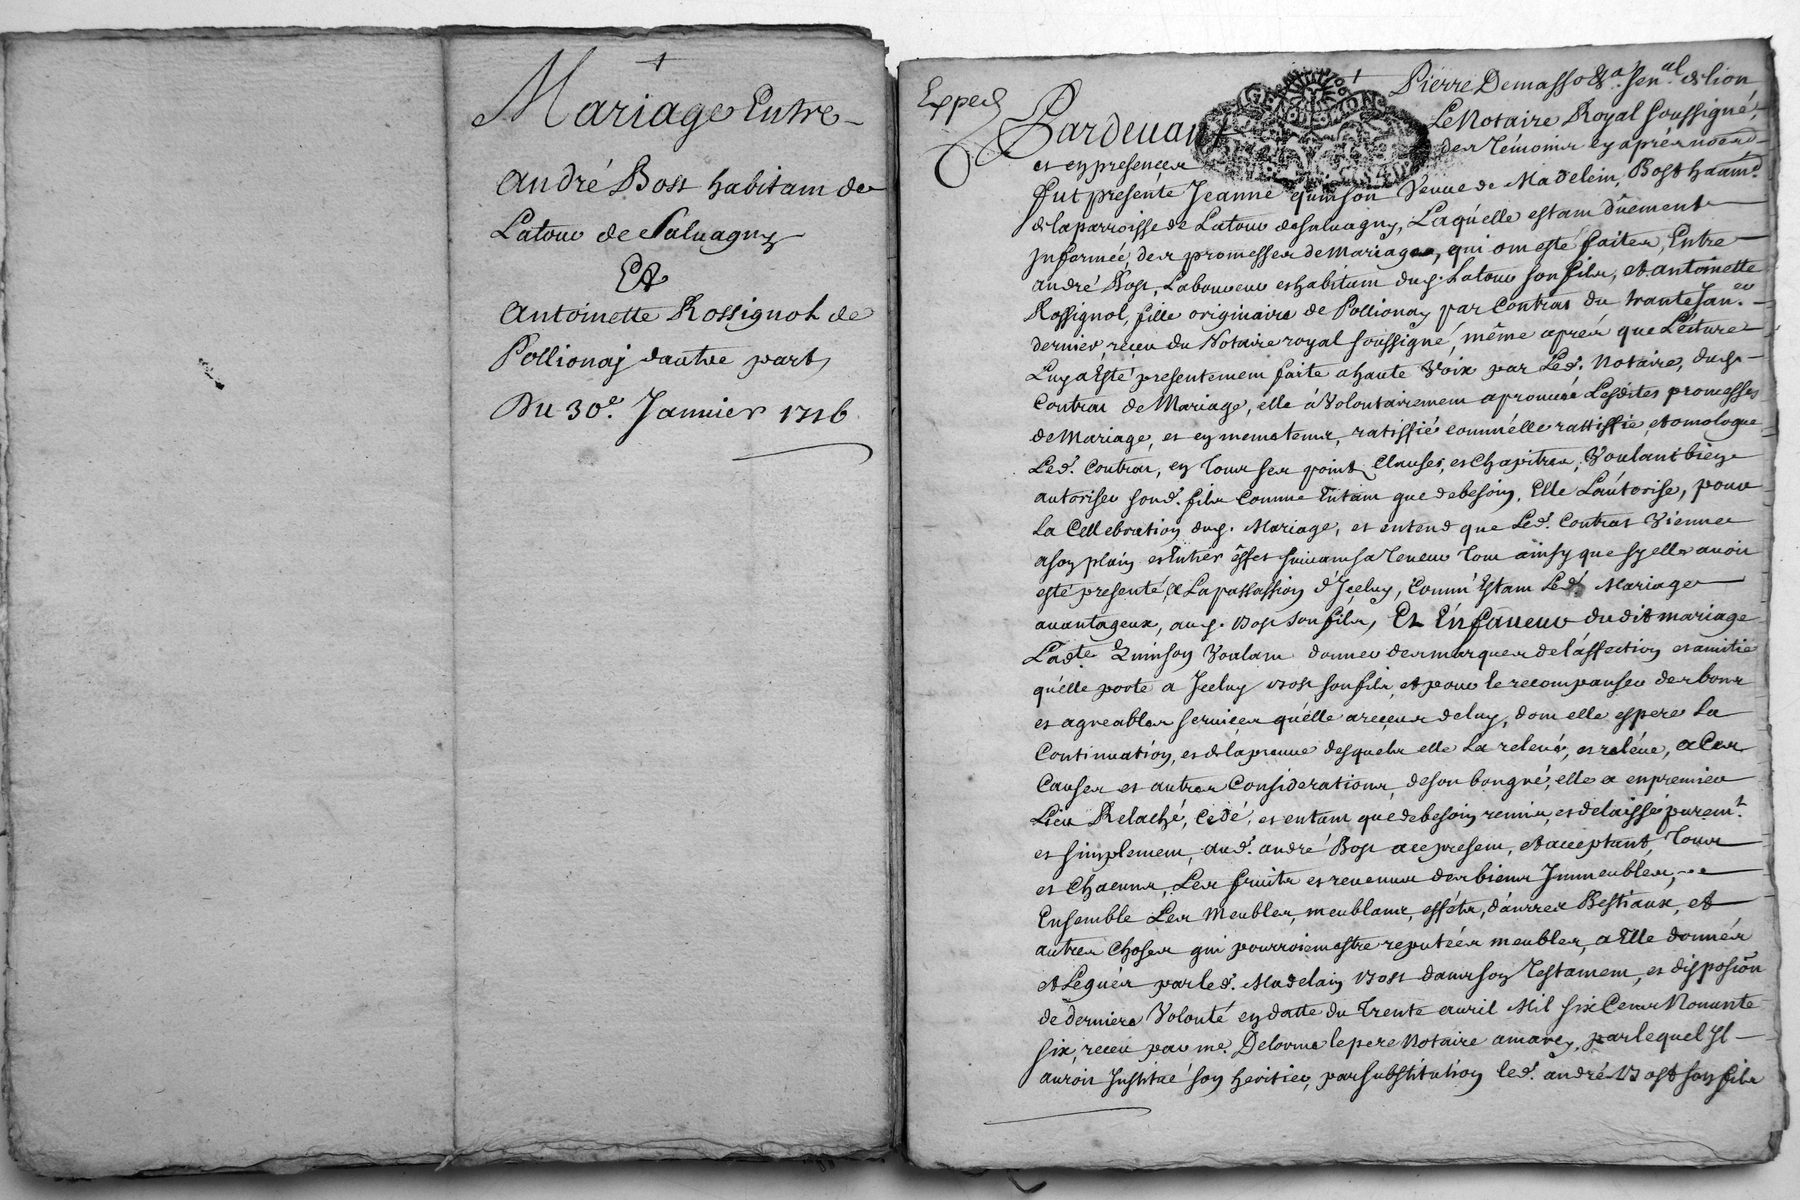 Mariage Entre
André Bost habitant de
Latour de Saluagny
Et
Antoinette Rossignol de
Pollionaj dautre part
Du 30e. Januier 1716
Exped
Pierre Demasso &a. Senal. de lion
Pardeuant Le Notaire Royal soussigné,
et en presence des Témoins cy aprés nom̃es
fut presente Jeanne quinson Veuue de Madelein, Bost habitte.
de la parroisse de Latour desaluagny, Laquelle estant dûement
jnformée, des promesses de mariage, qui ont esté faites, Entre
andré Bost, Laboureur et habitant dud. Latour son fils, et antoinette
Rossignol, fille originaire de Pollionay par Contrat du trante Janer
dernier, receu du Notaire royal soussigné, même aprés que Lecture
Luy a Esté presentement faite a haute Voix par Led. Notaire, dud.
Contrat de Mariage, elle á Volontairement aprouué Lesdites promesses
de Mariage, et en meme tems, ratiffié comm'elle rattiffie, et omologue
Led. Contrat, en Tous ses points Clauses, et Chapitres, Voulant bien
autoriser sond. fils Comme Entant que debesoin, Elle Lautorise, pour
La Cellebration dud. Mariage, et entend que Led. Contrat Vienne
a son plain et Entier effet suiuant sa Teneur Tout ainsy que sy elle auoit
esté presente, a La passassion d'Jceluy, Comm'Estant Led. Mariage
auantageux, aud. Bost son fils, Et Enfaueur dudit mariage
Ladte Quinson Voulant donner des marques de l'affection et amitié
qu'elle porte a Jceluy Bost son fils, et pour le recompanser des bons
et agreables seruices qu'elle a receus de luy, dont elle espere La
Continuation, et de la preuue desquels elle La releué, et reléue, a Ces
Causes et autres Considerations, de son bongré, elle a en premier
Lieu Relaché, Cedé, et entant que debesoin remis, et delaissé puremt.
et simplement, aud. andré Bost ace present, et acceptant, Tous
et Chacuns, Les fruits et reuenus des biens Jmmeubles,
Ensemble Les Meubles, meublans, efféts, danrrées Bestiaux, et
autres Choses qui pourroient estre reputées meubles, a Elle donnés
et Legués par led. Madelain Bost dans son Testament, et disposion̄
de derniere Volonté en datte du Trente auril Mil six Cens Nonante
six, receu par me. Delorme le pere Notaire amarcy, par lequel Jl
auroit Jnstitué son heritier, par substitution led. andré Bost son fils